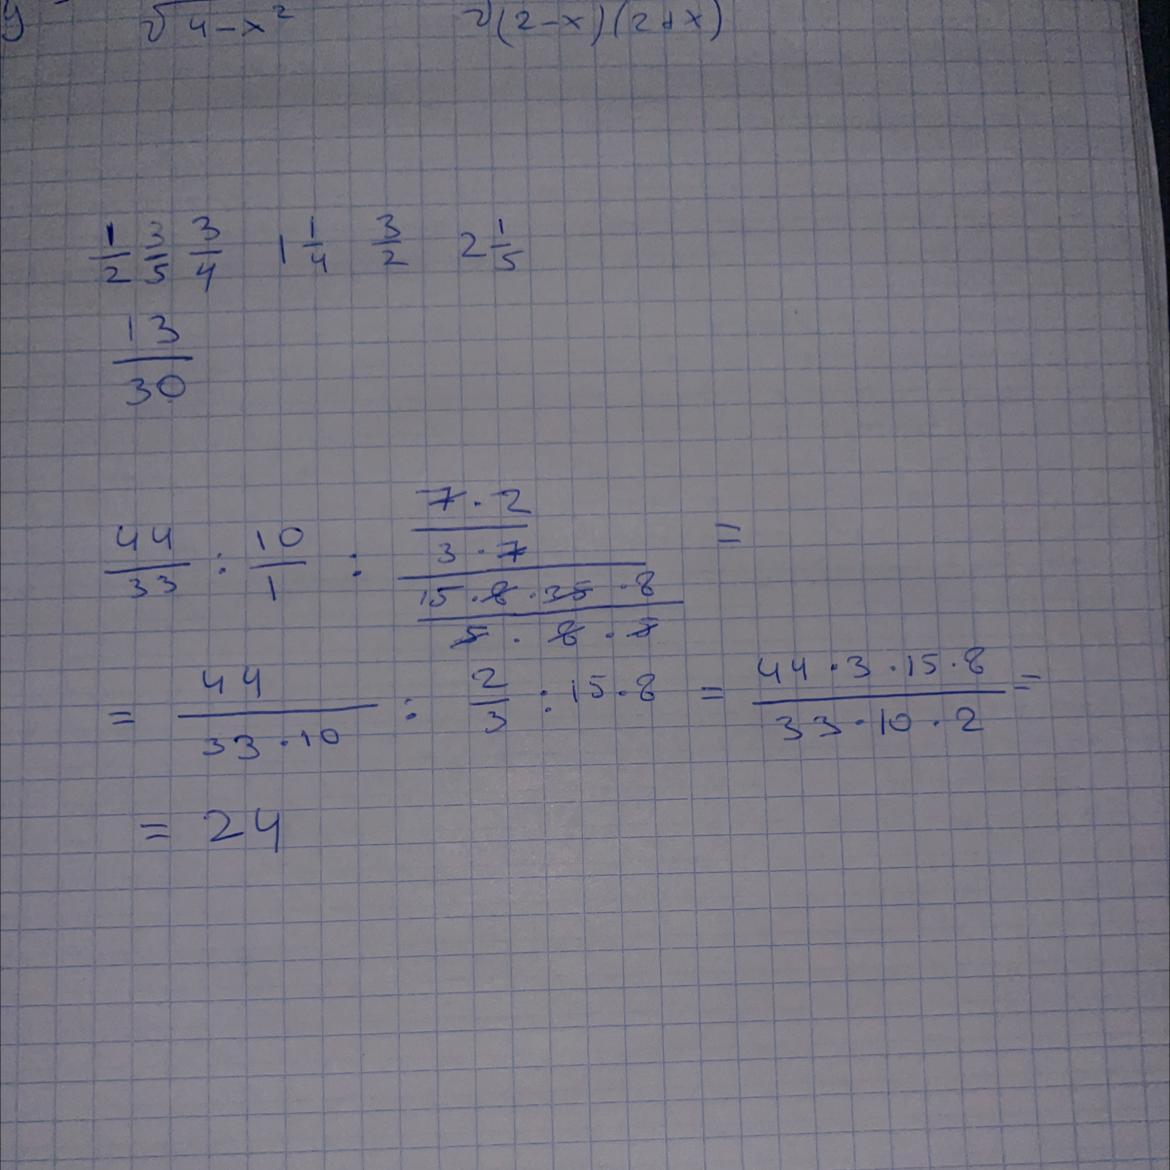 y √4-x² √(2-x)(2+x)
1/2 3/5 3/4 1 1/4 3/2 2 1/5
13/30
7·2
44/33 : 10/1 : 3·7 =
15·8·35·8
5·8·7
= 44/33·10 : 2/3 : 15·8 = 44·3·15·8/33·10·2 =
= 24